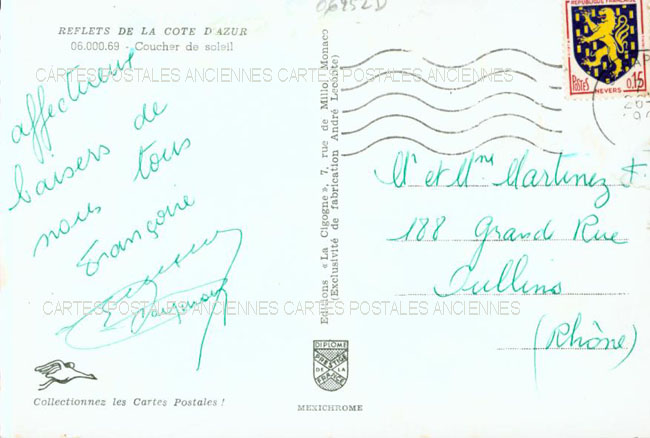 06952D
REFLETS DE LA COTE D'AZUR
06.000.69 - Coucher de soleil
CARTES POSTALES ANCIENNES CARTES POSTALES ANCIENNES
affectueux
baisers de
nous tous
Françoise
Editions « La Cigogne », 7, rue de Millo, Monaco
(Exclusivité de fabrication André Leconte)
REPUBLIQUE FRANCAISE
POSTES
0,15
NEVERS
Mr et Mme Martinez F.
188 Grand Rue
Oullins
(Rhône)
CARTES POSTALES ANCIENNES CARTES POSTALES ANCIENNES
DIPLOME
PRESTIGE
DE LA
FRANCE
Collectionnez les Cartes Postales !
MEXICHROME